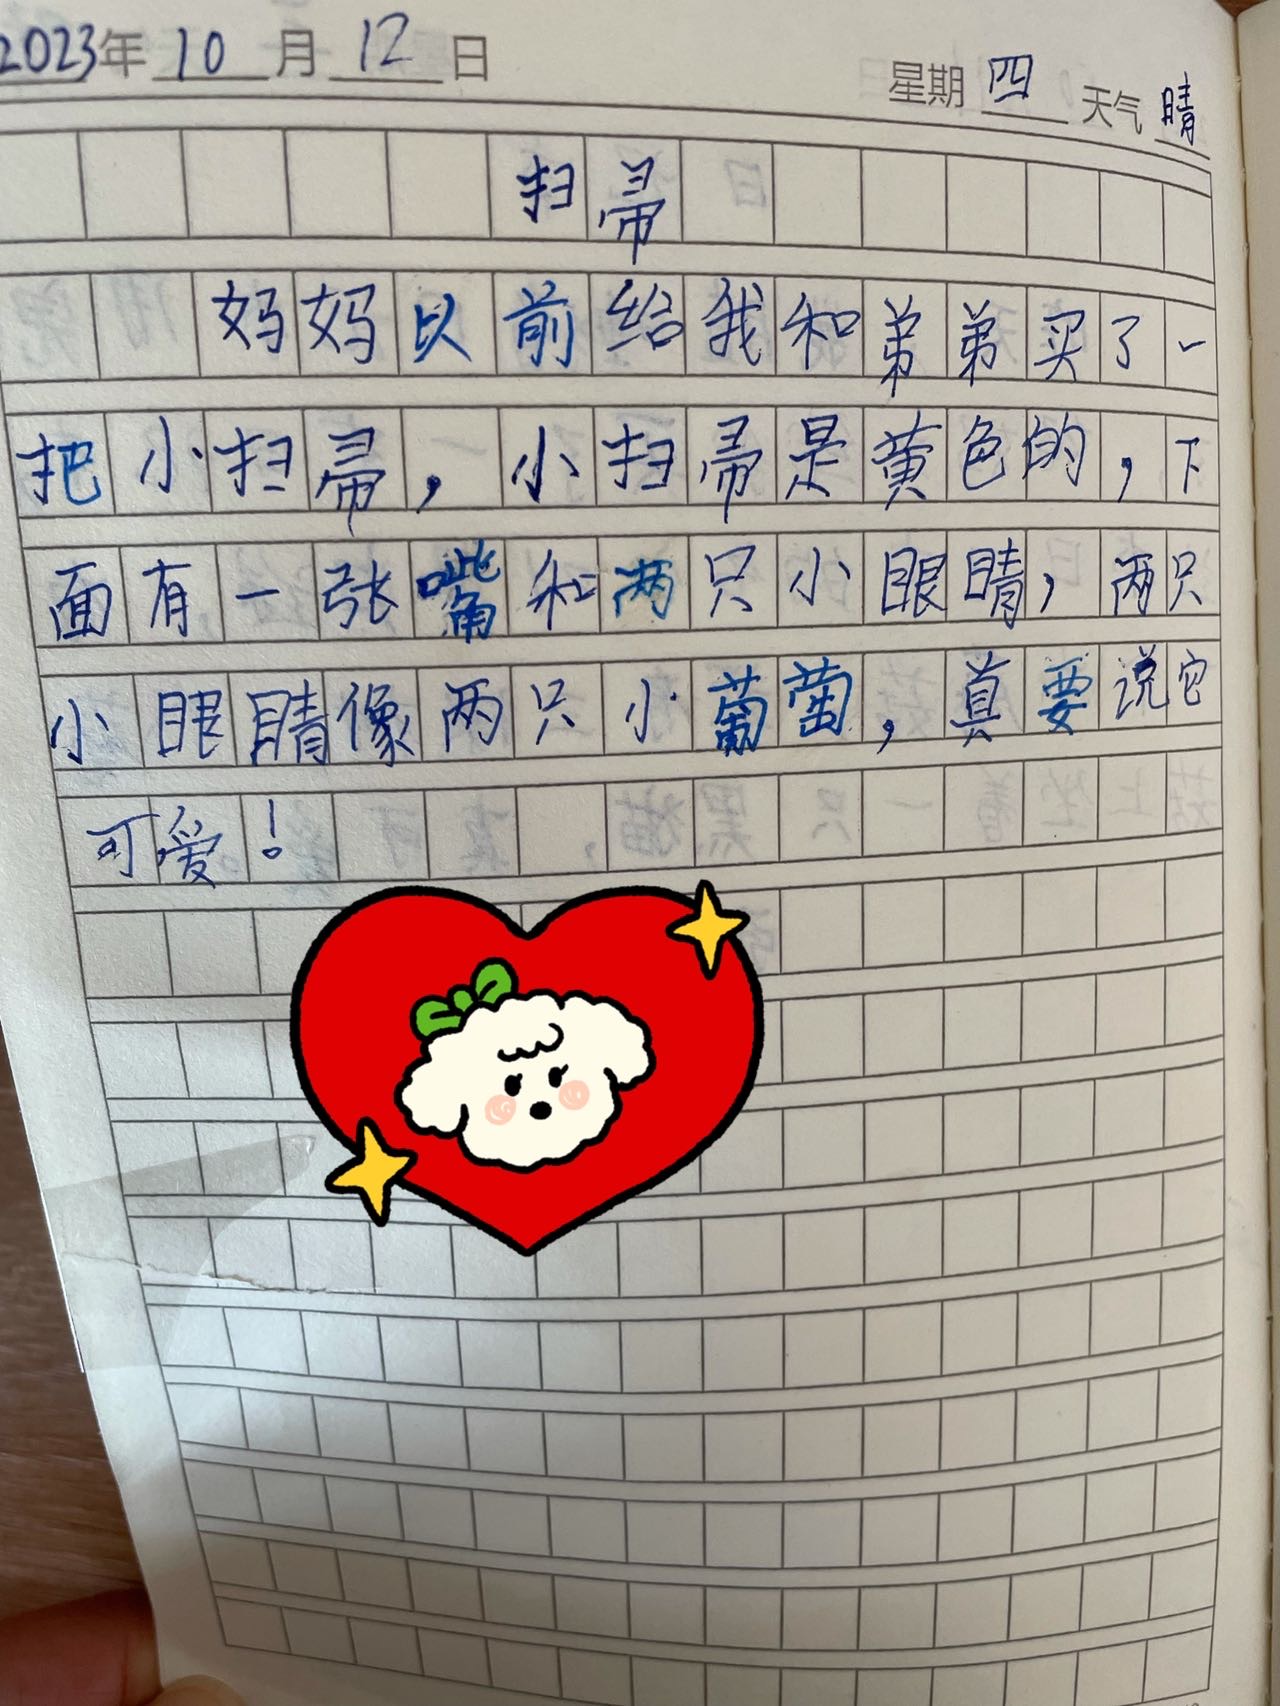 2023年10月12日
星期四 天气晴
扫帚
妈妈以前给我和弟弟买了一
把小扫帚，小扫帚是黄色的，下
面有一张嘴和两只小眼睛，两只
小眼睛像两只小葡萄，真要说它
可爱！